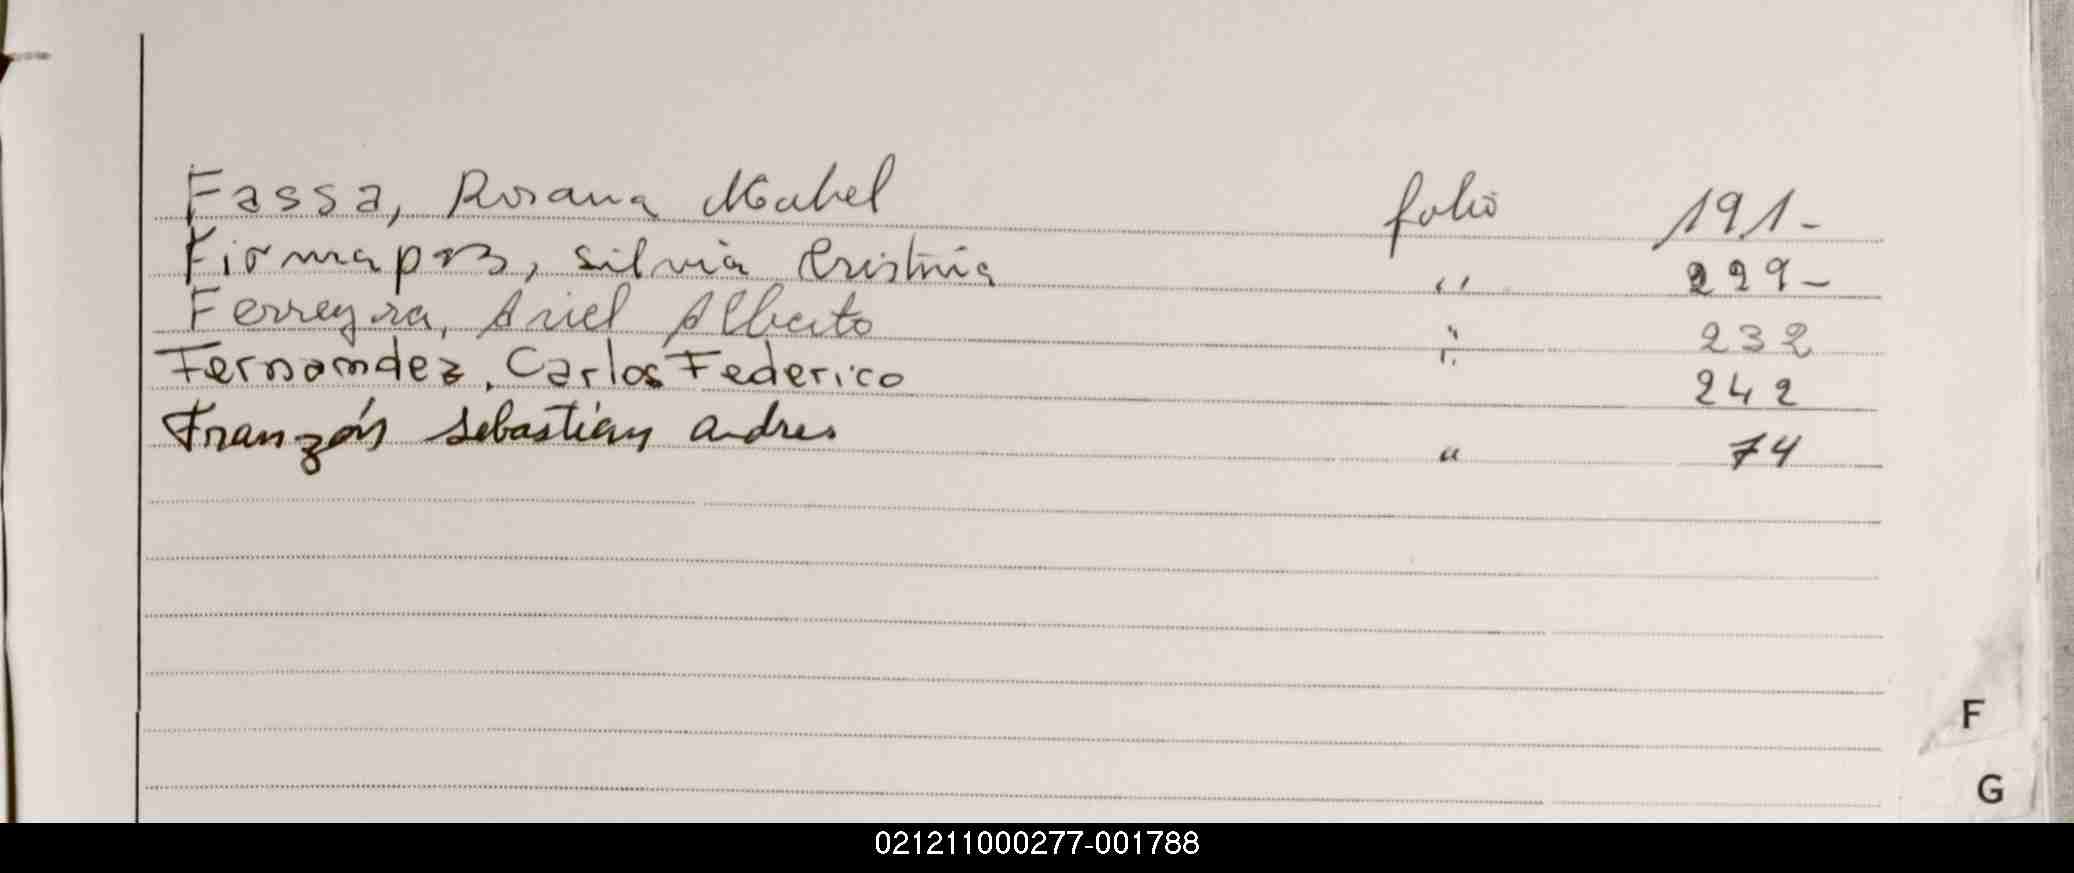 Fassa, Rosana Mabel folio 191-
Firmapaz, Silvia Cristina " 229-
Ferreyra, Ariel Alberto " 232
Fernandez, Carlos Federico " 242
Franzón Sebastián Andres " 74
F
G
021211000277-001788